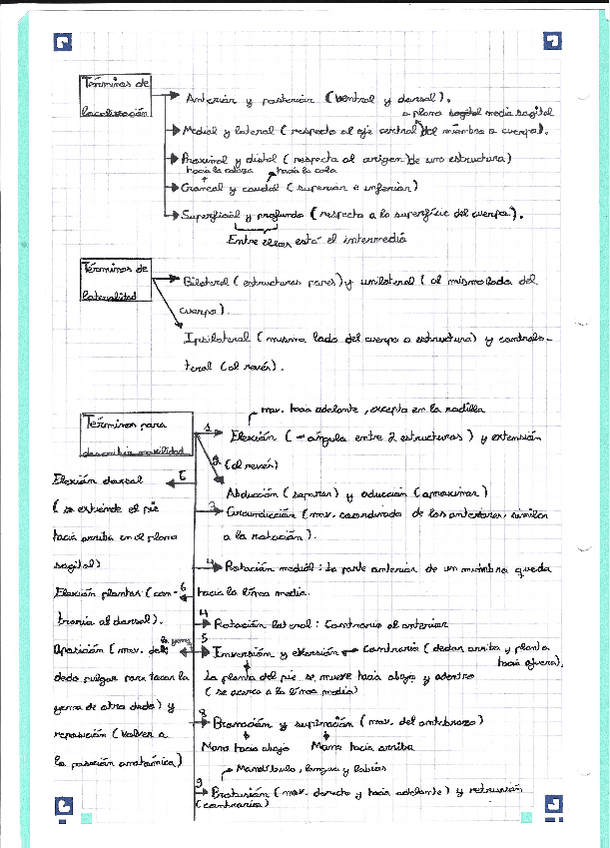 Términos de
localización
Anterior y posterior (ventral y dorsal).
o plano sagital media sagital
Medial y lateral (respecto al eje central del miembro o cuerpo).
Proximal y distal (respecto al origen de una estructura)
hacia la cabeza hacia la cola
Craneal y caudal (superior e inferior)
Superficial y profundo (respecto a la superficie del cuerpo).
Entre ellas está el intermedio
Términos de
lateralidad
Bilateral (estructuras pares) y unilateral (al mismo lado del
cuerpo).
Ipsilateral (mismo lado del cuerpo o estructura) y contrala-
teral (al revés).
Términos para
describir movilidad
mov. hacia adelante, excepto en la rodilla
1 Flexión (- ángulo entre 2 estructuras) y extensión
(al revés)
2 Abducción (separar) y aducción (aproximar)
3 Circunducción (mov. coordinado de los anteriores, similar
a la rotación).
4 Rotación medial: la parte anterior de un miembro queda
hacia la línea media.
4 Rotación lateral: Contrario al anterior
5 Inversión y eversión contrario (dedos arriba y planta
hacia afuera).
la planta del pie se mueve hacia abajo y adentro
(se acerca a la línea media)
8 Pronación y supinación (mov. del antebrazo)
Mano hacia abajo Mano hacia arriba
Mandíbula, lengua y labios
9 Protusión (mov. derecho y hacia adelante) y retrusión
(contrario)
Flexión dorsal
(se extiende el pie
hacia arriba en el plano
sagital)
6
Flexión plantar (con-
traria al dorsal).
la yema
Oposición (mov. del
dedo pulgar para tocar la
yema de otro dedo) y
reposición (volver a
la posición anatómica)